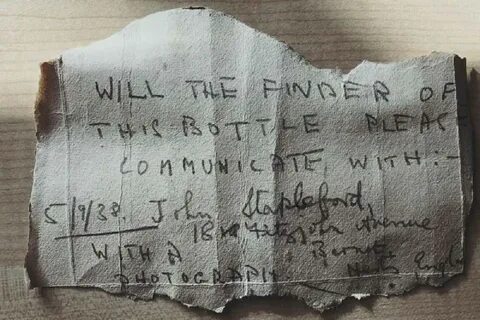 WILL THE FINDER OF
THIS BOTTLE PLEAS
COMMUNICATE WITH:-
5/9/38. John Stapleford,
Avenue
WITH A
PHOTOGRAPH.